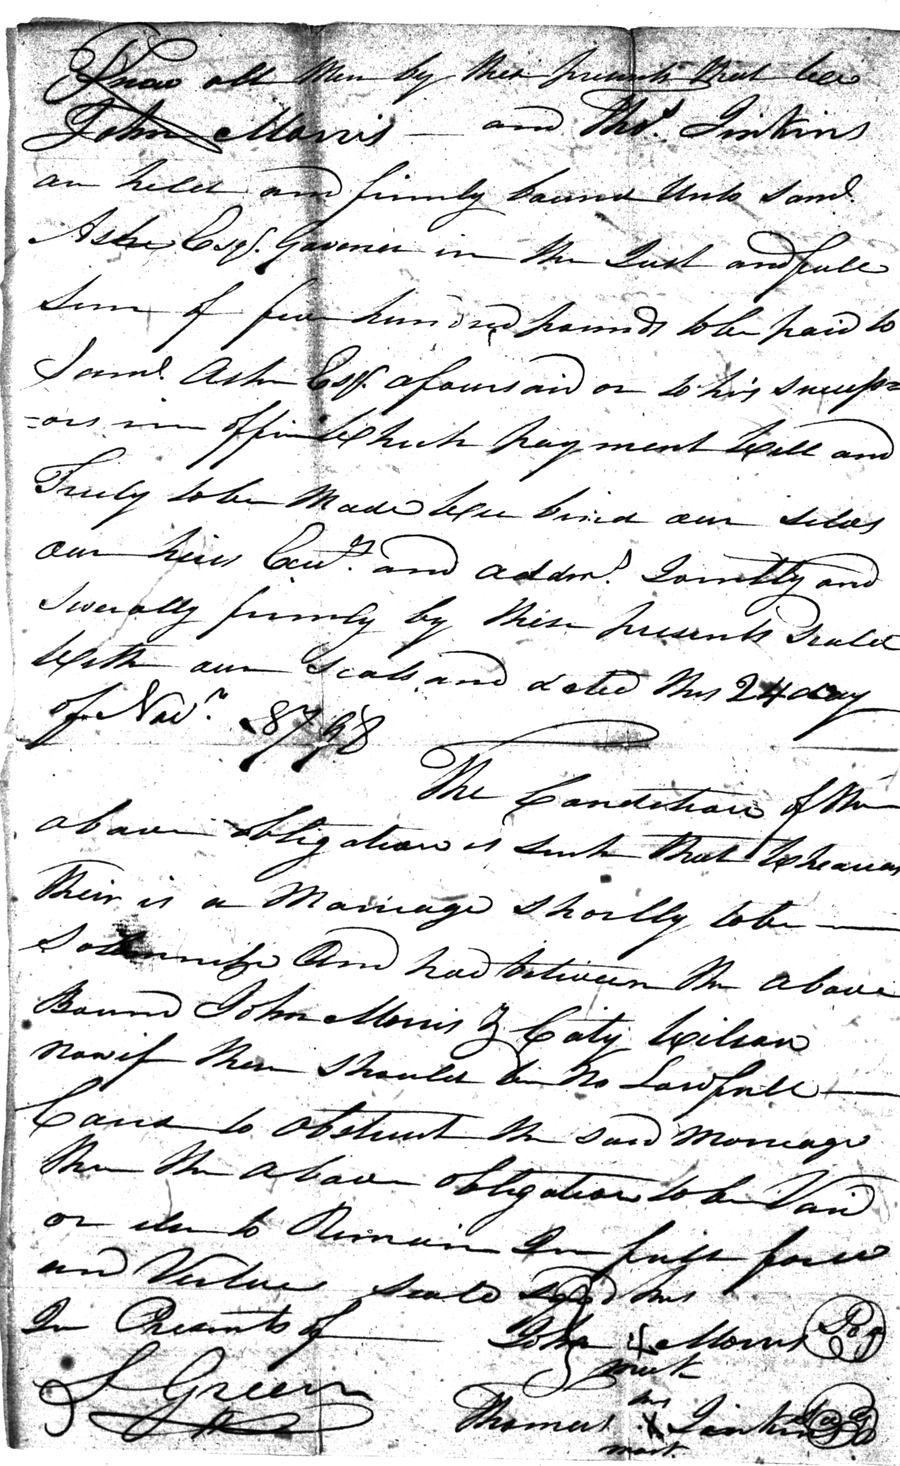 Know all Men by these presents that wee
John Morris — and Thos. Jinkins
are held and firmly bound unto Saml.
Ashe Esqr. Govener in the Just and full
Sum of five hundred pounds to be paid to
Saml. Ashe Esqr. afoursaid or to his Success=
=ors in office Which payment Well and
Truly to be Made Wee bind our selves
our heirs Exutr. and addmr. Jointly and
severally firmly by these presents Sealed
With our Seals and dated this 24 day
of Novr. 1798
The Condition of the
above obligation is such that Wheareas
their is a Marriage shortly to be —
Solemnize And had between the above
Bound John Morris & Caty Wilson
now if there should be no Lawfull —
Caus to obstruct the said Marriage
then the above obligation to be Void
or else to Remain In full force
and Vertue Seald Signd this
In Presents of —
John Morris
mark
S Green
his
Thomas X Jinkins
mark